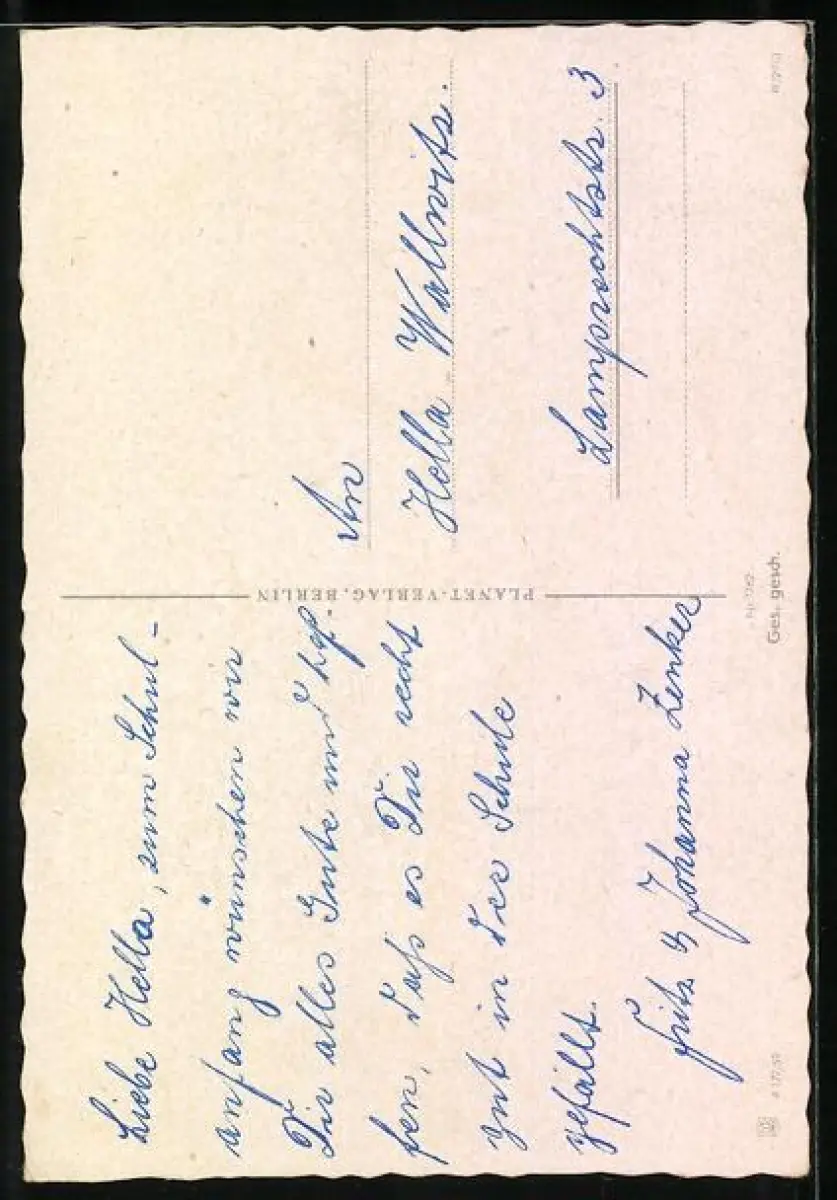 Liebe Hella, zum Schul-
anfang wünschen wir
Dir alles Gute und hof-
fen, daß es Dir recht
gut in der Schule
gefällt.
Fritz & Johanna Zenker
PLANET-VERLAG, BERLIN
An
Hella Wallwitz.
Lamprechtstr. 3
Ges. gesch.